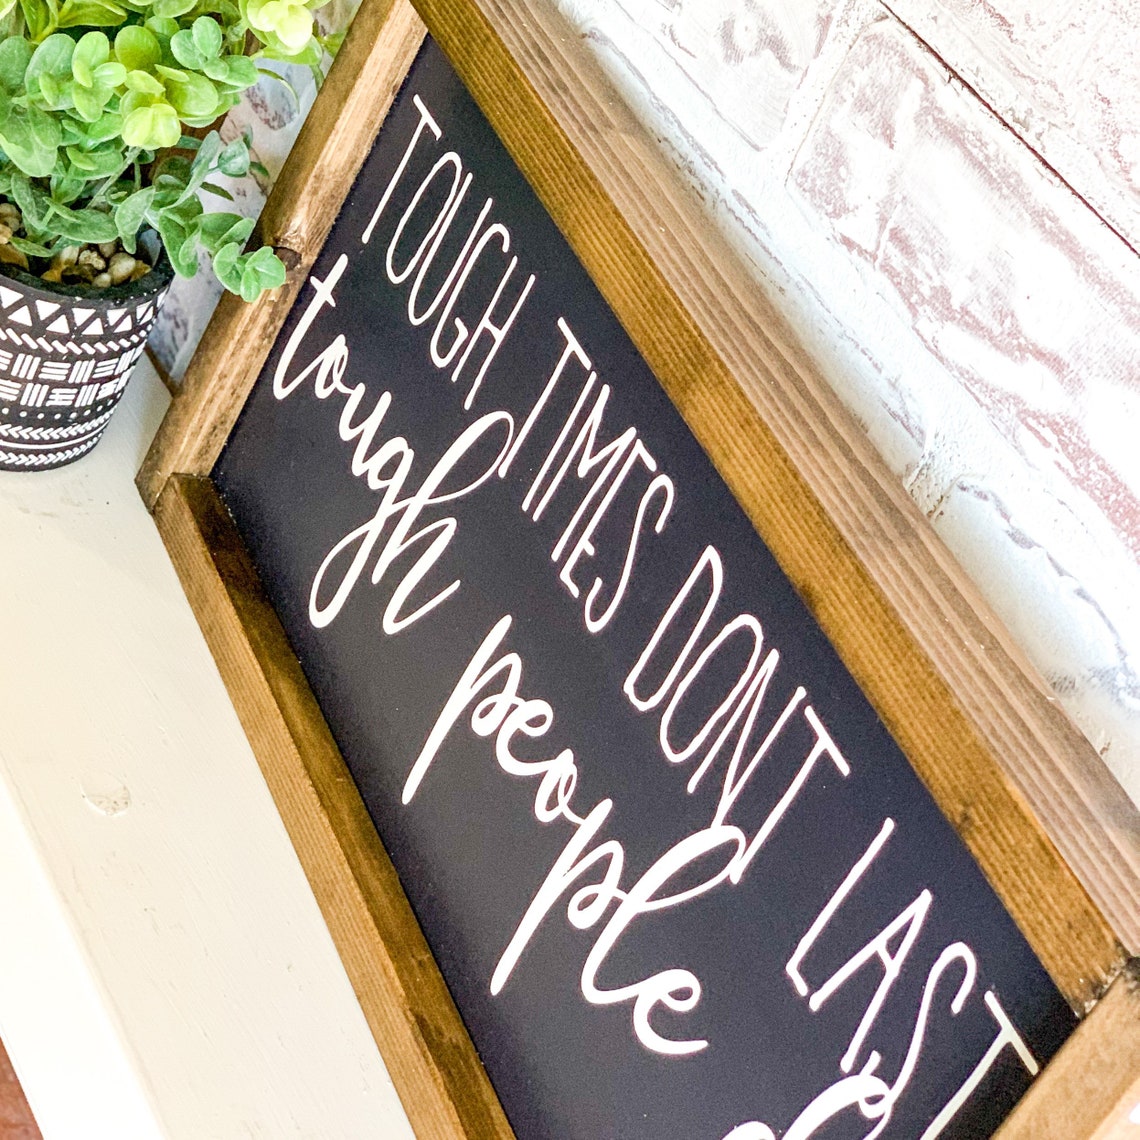 TOUGH TIMES DONT LAST
tough people